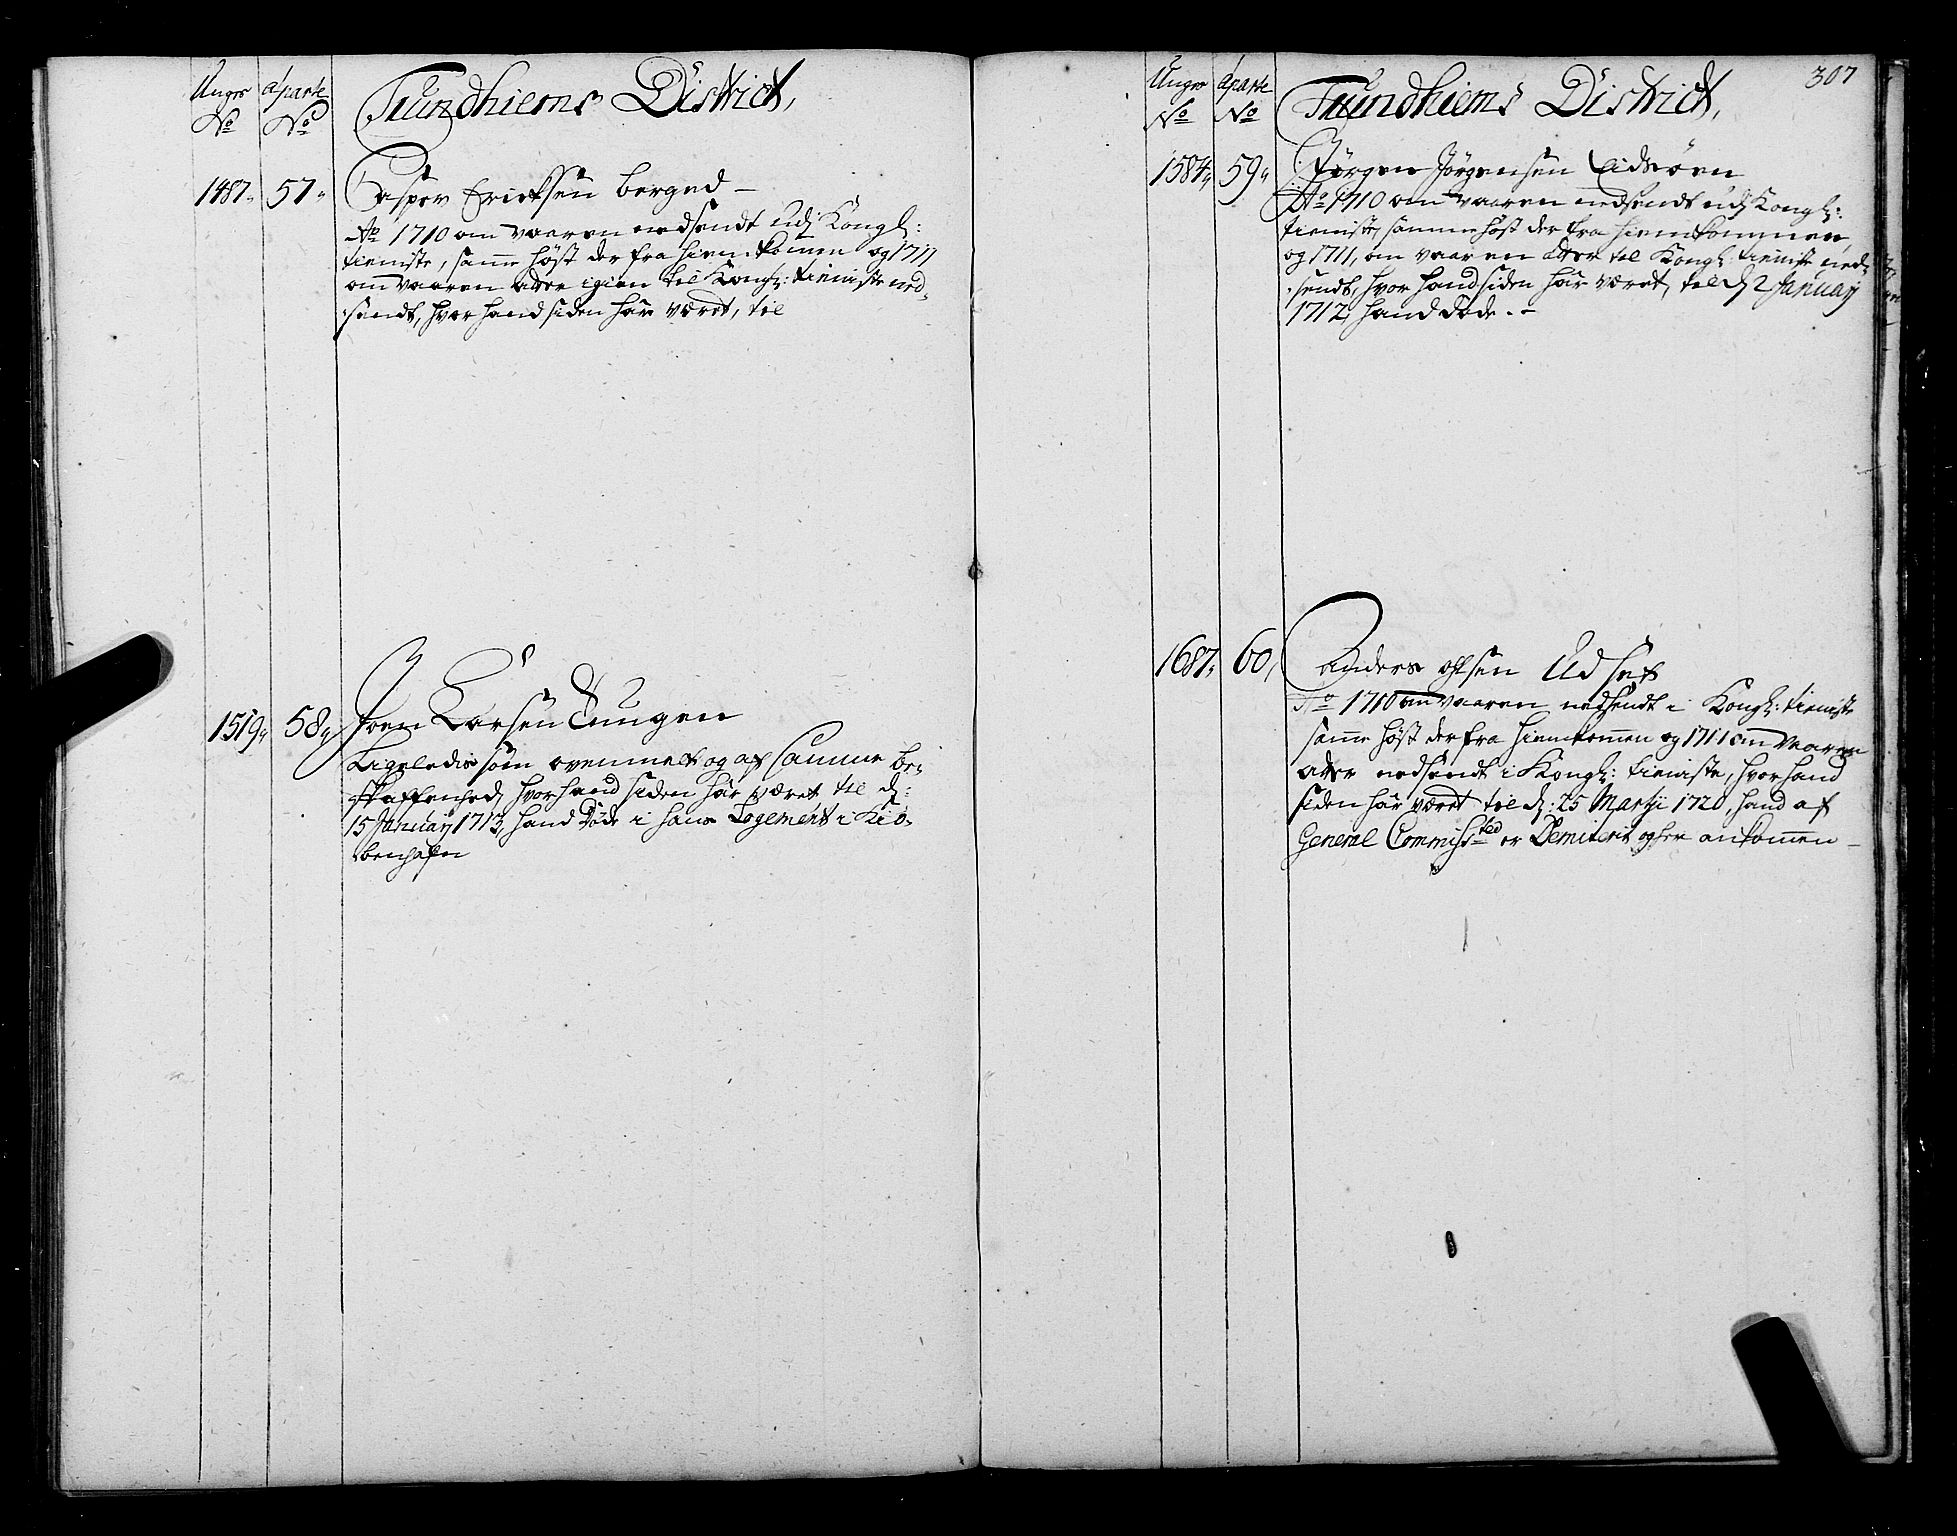 Unge aparte
No No
Trundhiems District,
1487. 57.
Casper Ericksen berged
Ao 1710 om vaaren nedsendt udj Kongl:
tieniste, same høst der fra hiemkomen og 1711
om vaaren atter igien til Kongl: tieniste ned-
sendt, hvor hand siden har været, til
1519. 58.
Joen Larsen
Ligeledis som ovenmelt og af samme be-
skaffenhed, hvor hand siden har været til d:
15 January 1713, hand døde i hans Logement i Kiø-
benhafn
307
Unge aparte
No No
Trundhiems District,
1584. 59.
Jørgen Jørgensen Eidsøren
Ao 1710 om vaaren nedsendt udj Kongl:
tieniste, samme høst der fra hiemkommen,
og 1711, om vaaren atter til Kongl: tieniste ned-
sendt, hvor hand siden har været, til d 2 January
1712, hand døde.
1687. 60.
Anders olsen Udset
Ao 1710 om vaaren nedsendt i Kongl: tieniste
same høst der fra hiemkomen og 1711 om vaaren
atter nedsendt i Kongl: tieniste, hvor hand
siden har været til d: 25 Martji 1720, hand af
General Commiss ted er Demiterit og her ankomen